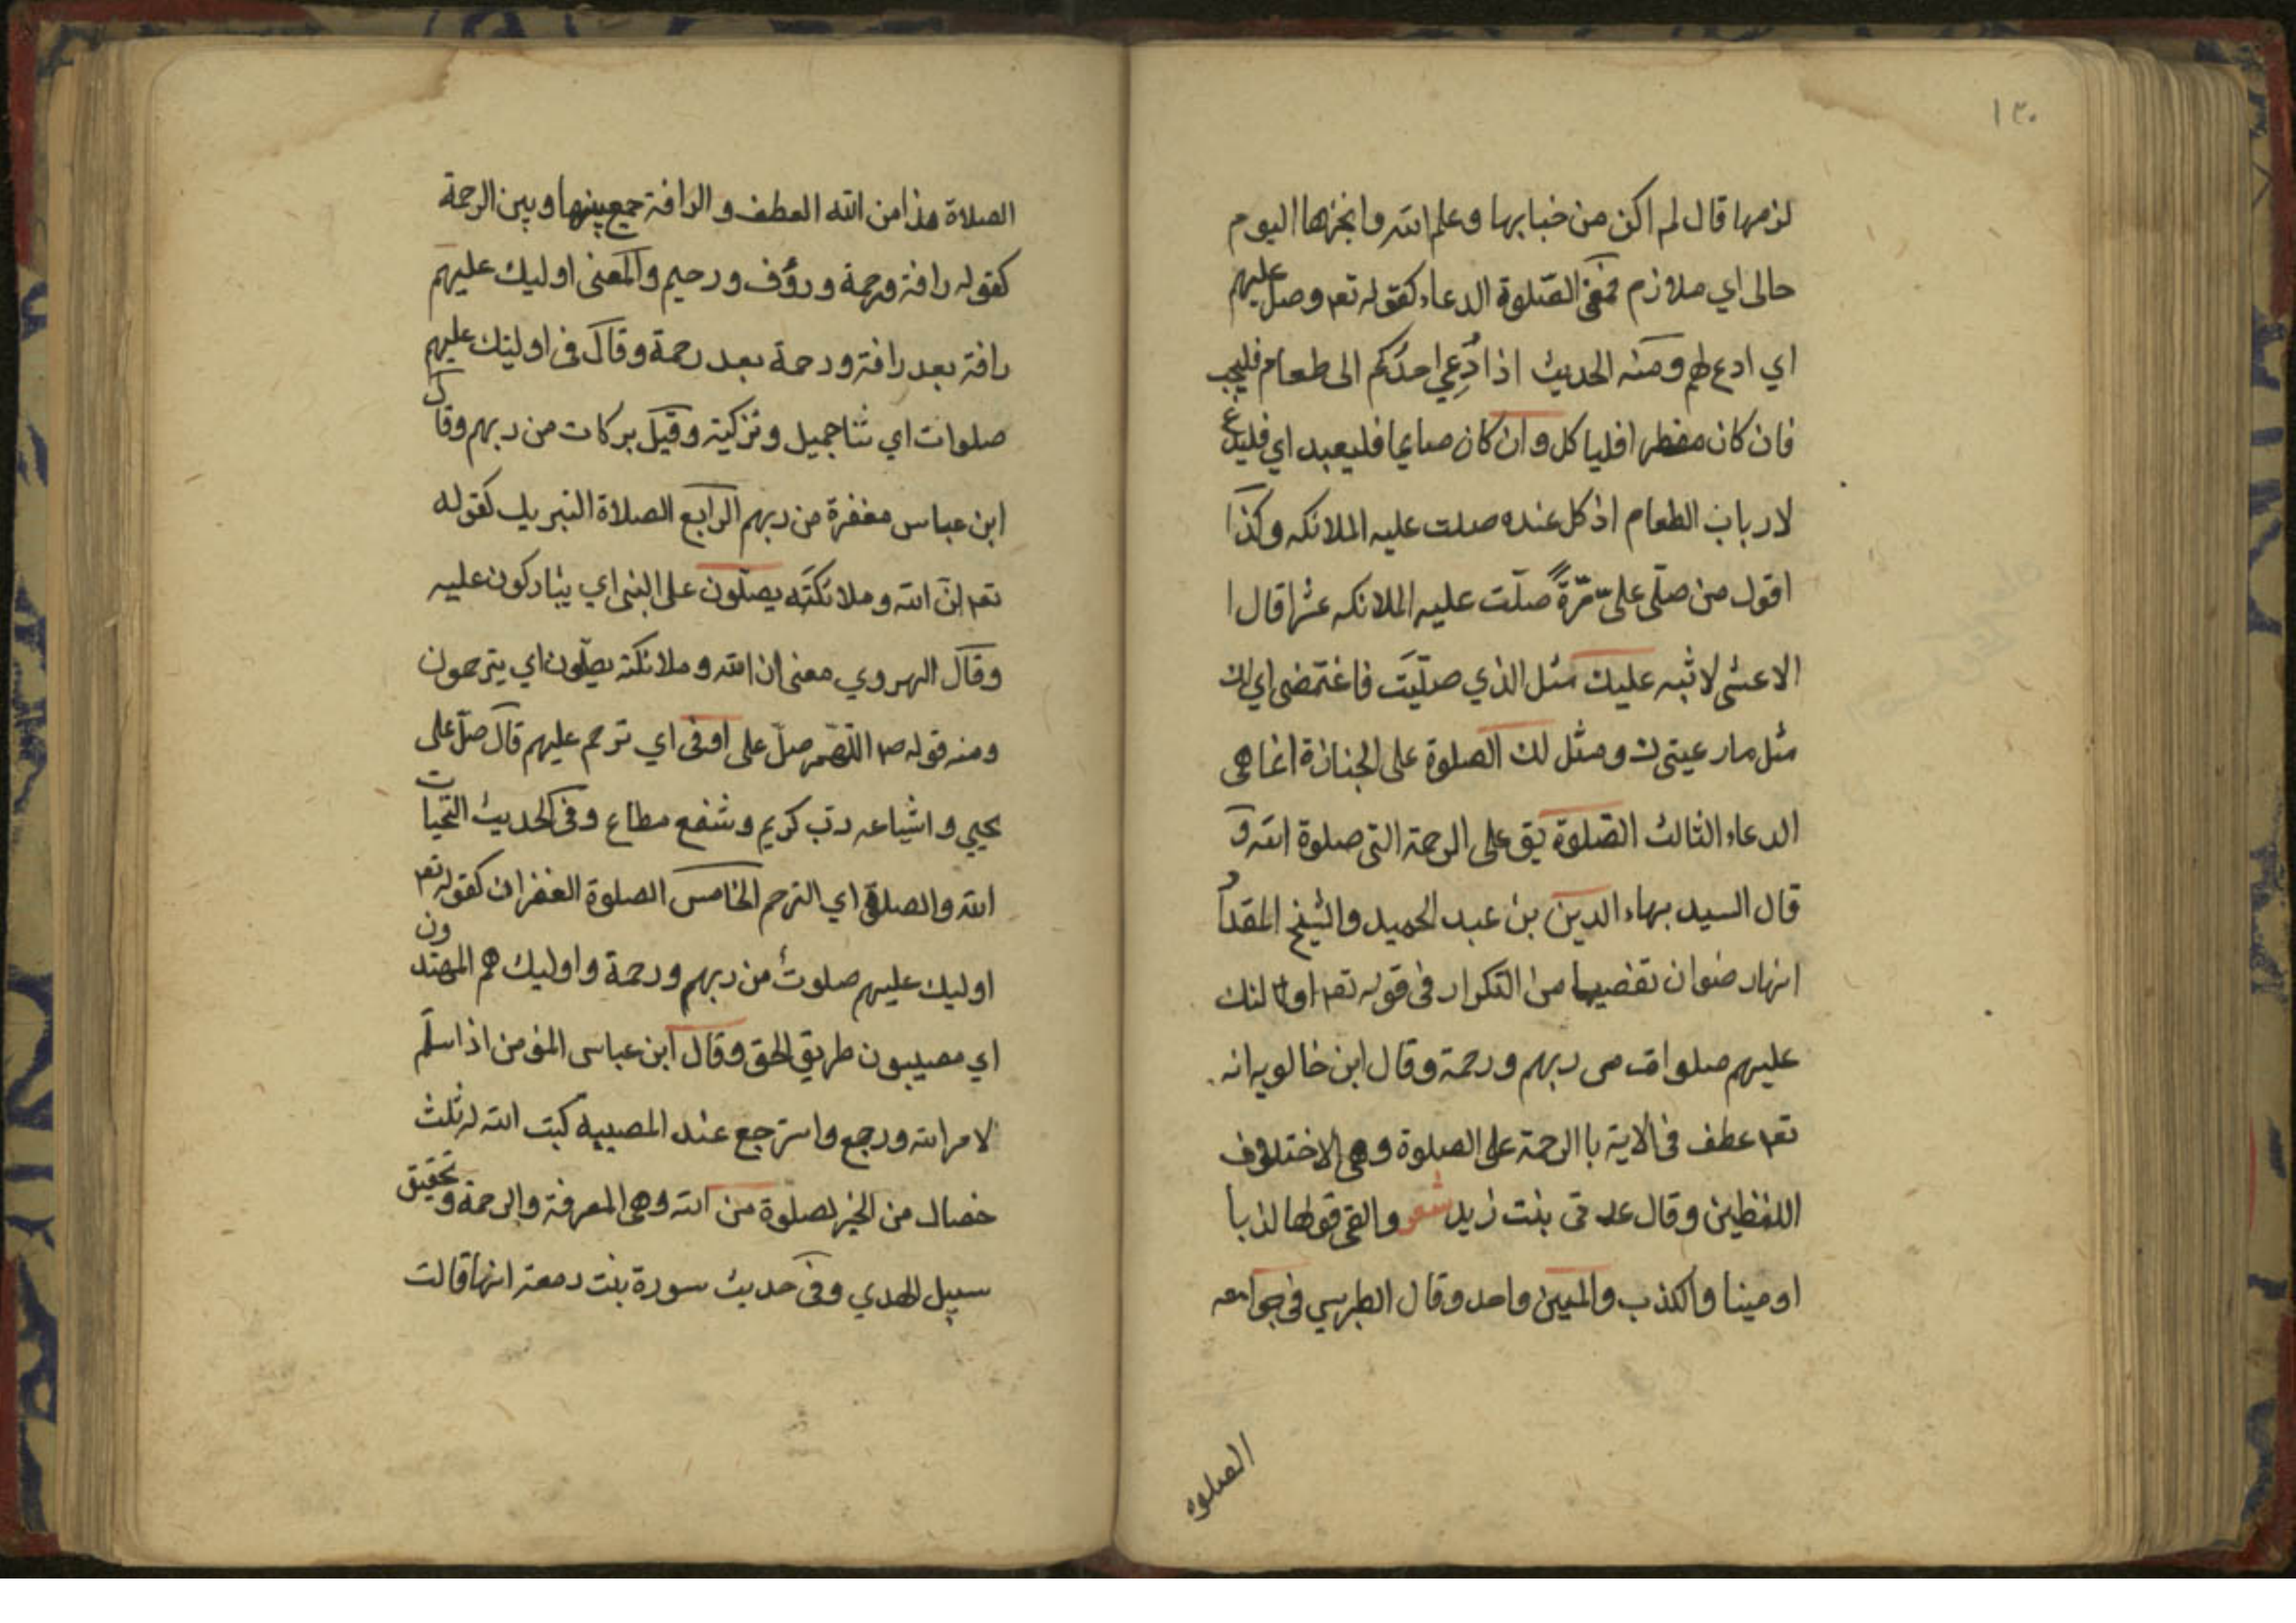 ١٣٠
لزمها قال لم اكن من خبابرها وعلم الله وانجزها اليوم
حالى اي ملازم فمعنى الصّلوة الدعاء كقوله تعم وصل عليهم
اي ادع لهم ومنه الحديث اذا دُعِي احدكم الى طعام فليجب
فان كان مفطرا فلياكل وان كان صايما فليعبد اي فليدع
لارباب الطعام اذ كل عنده صلت عليه الملائكه وكذا
اقول من صلّى علىّ مرّةً صلّت عليه الملائكه عشرا قال ا
الاعشى لا ثبه عليك مثل الذي صلّيت فاغتمضى اي لك
مثل ما رعيتى ك ومثل لك الصلوة على الجنازة انما هى
الدعاء الثالث الصّلوة يق على الرحمة التى صلوة الله و
قال السيد بهاء الدين بن عبد الحميد والشيخ المقداد
انهار ضوان تفضيها من التكرار فى قوله تعم اولائك
عليهم صلوات من ربهم ورحمة وقال ابن خالويه انه
تعم عطف فى الاية باالرحمة على الصلوة وهى لاختلاف
اللفظين وقال عد قى بنت زيد شعر والقى قولها لذبا
او مينا والكذب والمين واحد وقال الطبرسي فى جوامعه
الصلوه
الصلاة هذا من الله العطف والرافة جمع بينها وبين الرحمة
كقوله رافة ورحمة ورؤف ورحيم والمعنى اوليك عليهم
رافة بعد رافة ورحمة بعد رحمة وقال فى اوليك عليهم
صلوات اي ثنا جميل وتزكية وقيل بركات من ربهم وقال
ابن عباس مغفرة من ربهم الرابع الصلاة التبريك كقوله
تعم انّ الله وملائكته يصلّون على النبى اي يباركون عليه
وقال الهروي معنى ان الله وملائكته يصلّون اي يترحمون
ومنه قوله صم اللّهم صلّ على اوفى اي ترحم عليهم قال صلّ على
يحيي واشياعه ربّ كريم وشفع مطاع وفى الحديث التحيات
الله والصلوة اي الترحم الخامس الصلوة الغفران كقوله تعم
اوليك عليهم صلوتٌ من ربهم ورحمة واوليك هم المهتدون
اي مصيبون طريق الحق وقال ابن عباس المؤمن اذا سلّم
لامر الله ورجع واسترجع عند المصيبه كتب الله له ثلث
خصال من الخير لصلوة من الله وهى المعرفة والرحمة وتحقيق
سبيل الهدي وفى حديث سورة بنت دمعة انها قالت